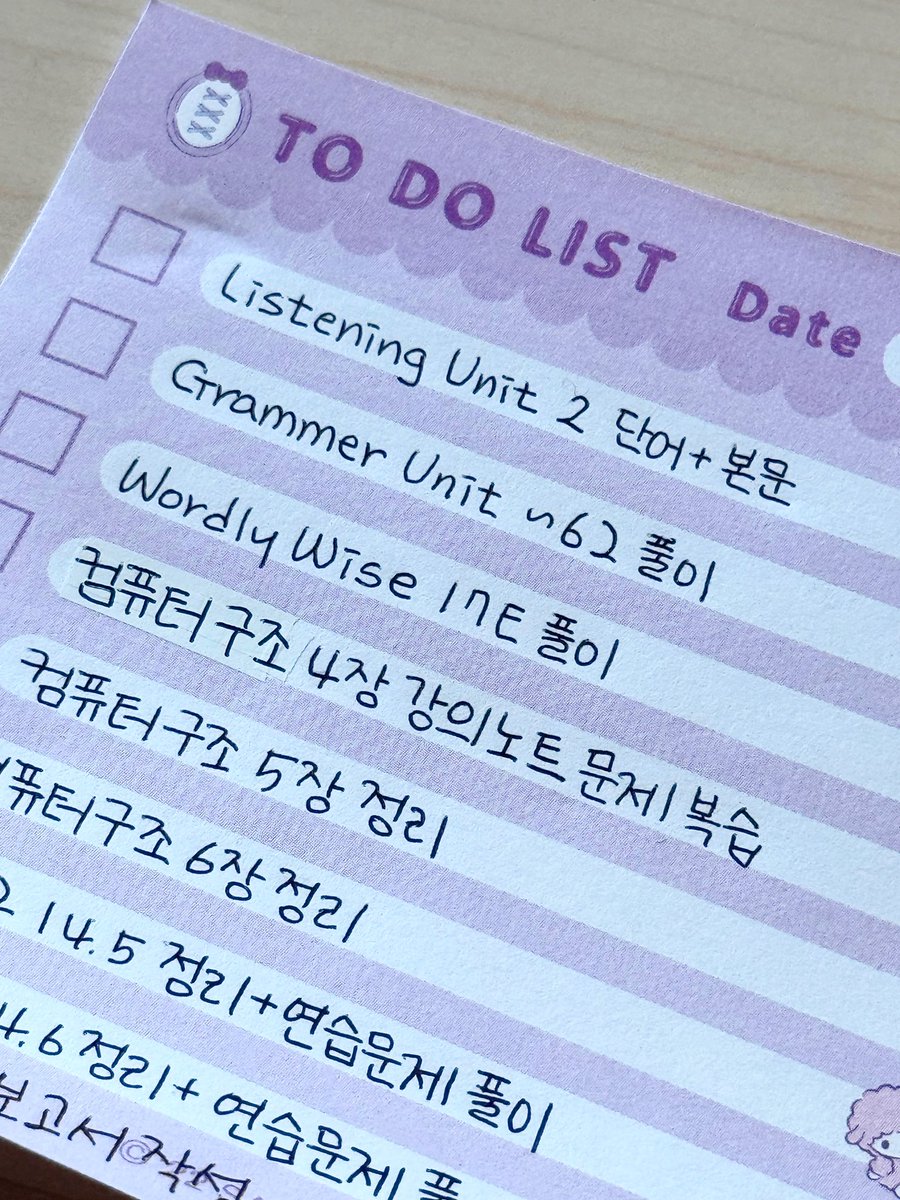 TO DO LIST Date
Listening Unit 2 단어+본문
Grammer Unit n62 풀이
Wordly Wise 17E 풀이
컴퓨터구조 4장 강의노트 문제 복습
컴퓨터구조 5장 정리
컴퓨터구조 6장 정리
2 14.5 정리+연습문제 풀이
4.6 정리+연습문제 풀
보고서 작성